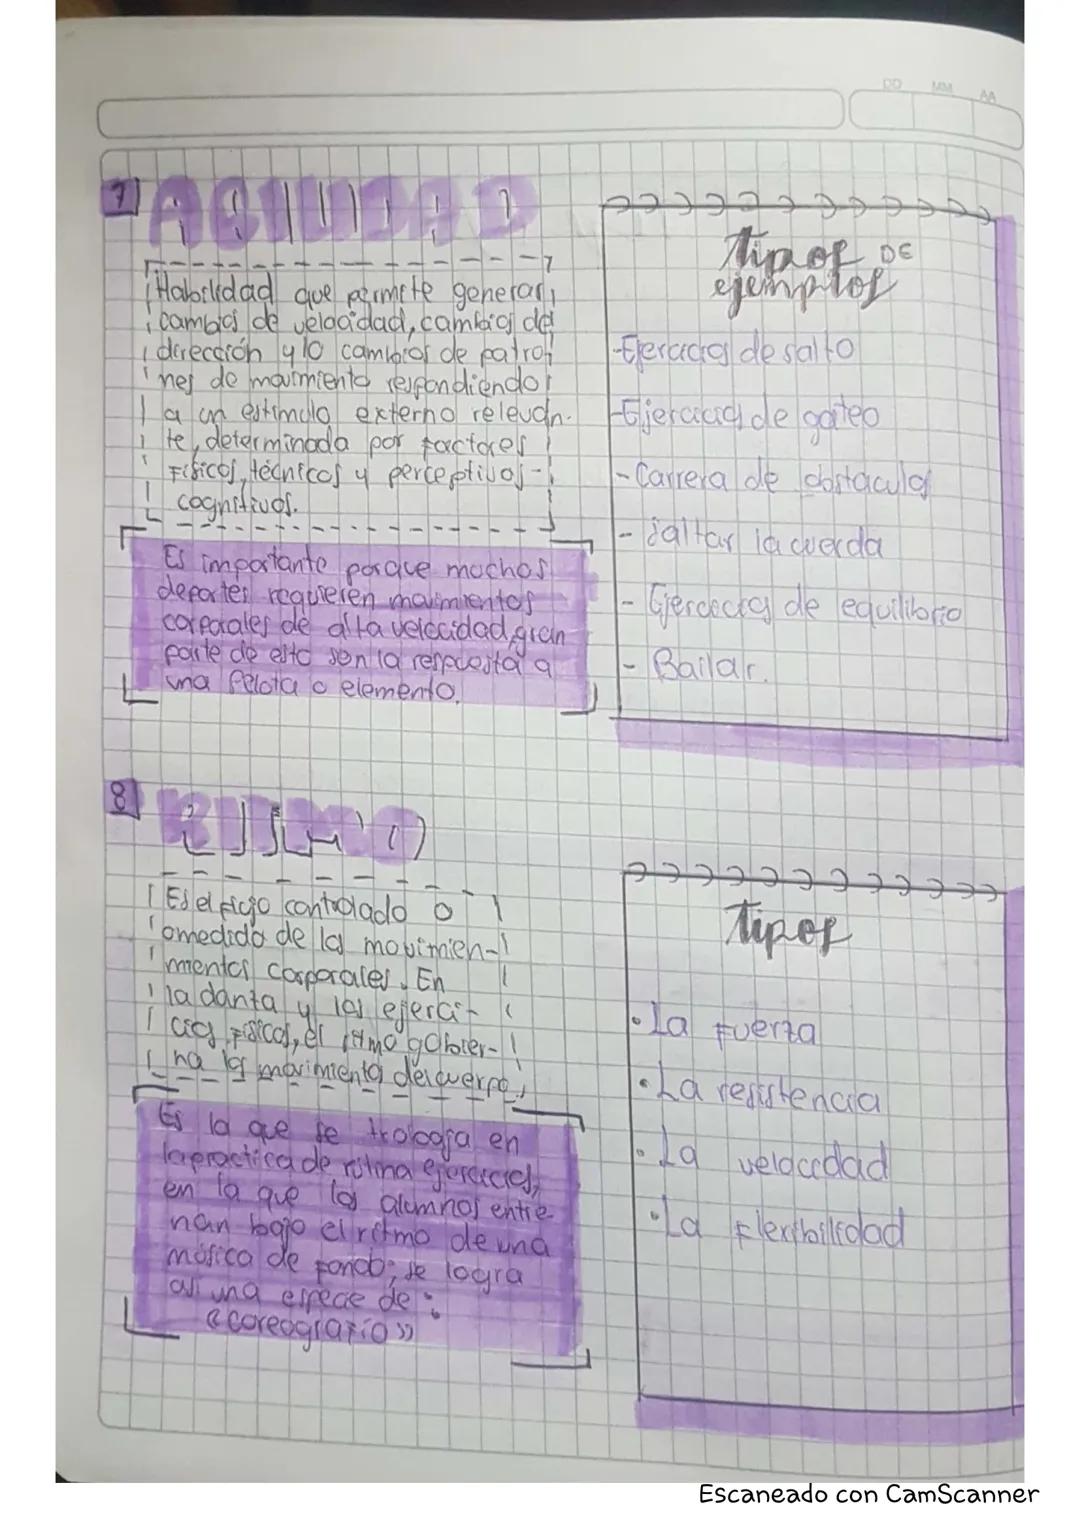 DD MM AA
7 AGILIDAD
Habilidad que permite generar
cambios de velocidad, cambios de
dirección y/o cambios de patro-
nes de movimiento respondiendo
a un estimulo externo relevan-
te, determinada por factores
Físicos, técnicos y perceptivos-
cognitivos.
Es importante porque muchos
deportes requieren movimientos
corporales de alta velocidad, gran
parte de esto son la respuesta a
una pelota o elemento.
Tipos DE
ejemplos
-Ejercicios de salto
-Ejercicios de gateo
-Carrera de obstaculos
- Saltar la cuerda
- Ejercicios de equilibrio
- Bailar.
8 RITMO
Es el flujo controlado o
omedido de los movimien-
mientos corporales. En
la danza y los ejerci-
cios Físicos, el ritmo gobier-
na los movimientos del cuerpo.
Es la que se
la practica de ejercicios,
en la que los alumnos entre-
nan bajo el ritmo de una
música de fondo; se logra
asi una especie de:
«coreografía»
Tipos
•La fuerza
•La resistencia
•La velocidad
•La flexibilidad
Escaneado con CamScanner